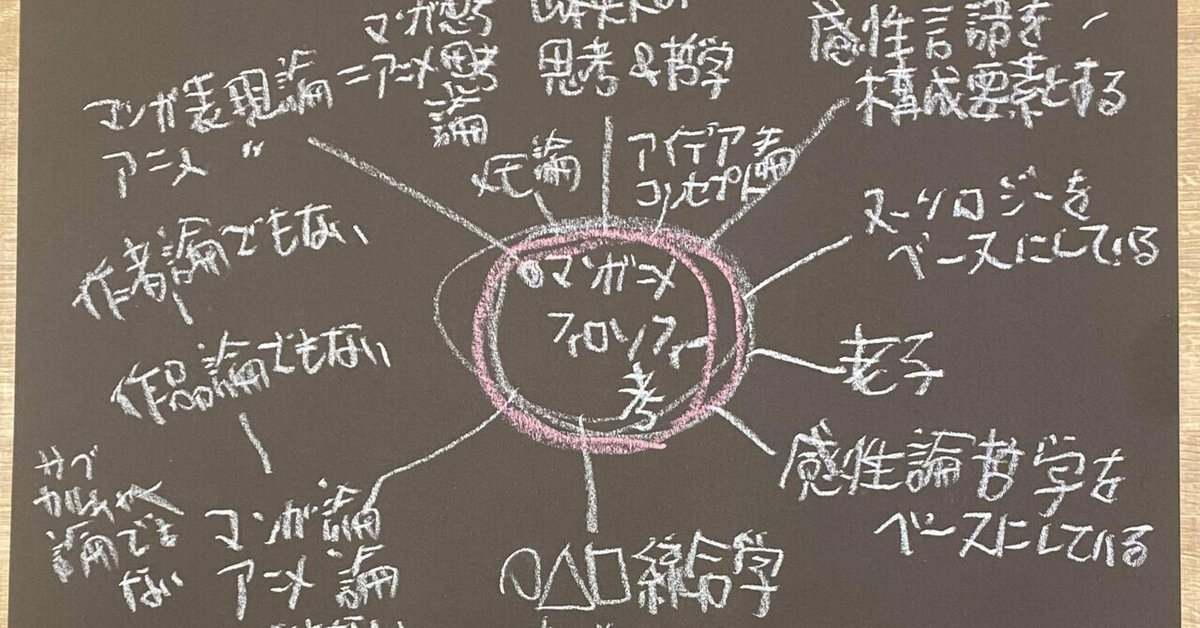 マンガ表現論=アニメ思考論
アニメ 〃
マンガ思考
思考&哲学
感性言語を
構成要素とする
メモ論
アイデア論
コンセプト
ヌーソロジーを
ベースにしている
作者論でもない
作品論でもない
マンガニメ
フィロソフィー
考
老子
感性論哲学を
ベースにしている
サブ
カルチャー
論でも
ない
マンガ論
アニメ論
○△□綜合学